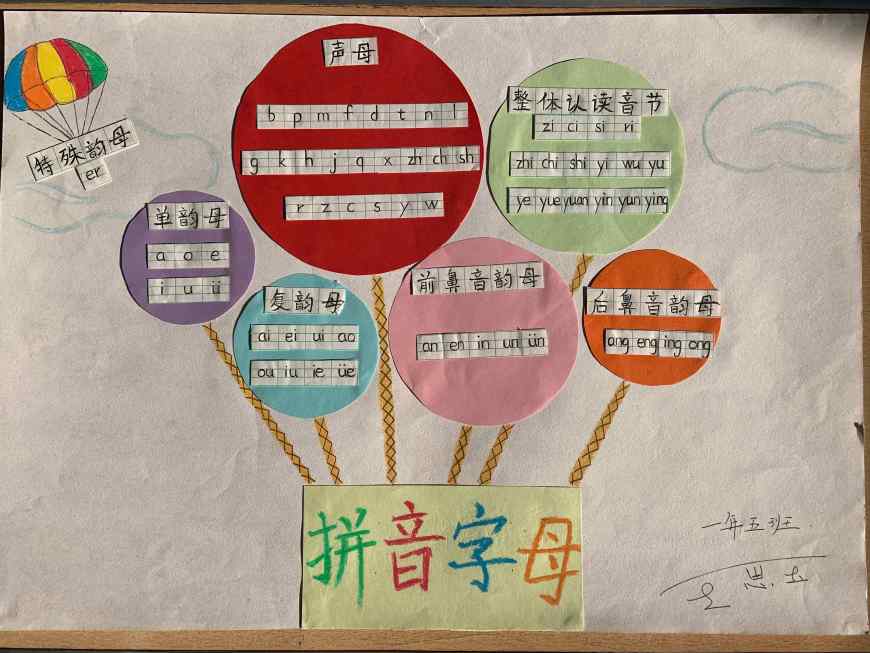 特殊韵母
er
声母
b p m f d t n l
g k h j q x zh ch sh
r z c s y w
整体认读音节
zi ci si ri
zhi chi shi yi wu yu
ye yue yuan yin yun ying
单韵母
a o e
i u ü
复韵母
ai ei ui ao
ou iu ie üe
前鼻音韵母
an en in un ün
后鼻音韵母
ang eng ing ong
拼音字母
一年五班